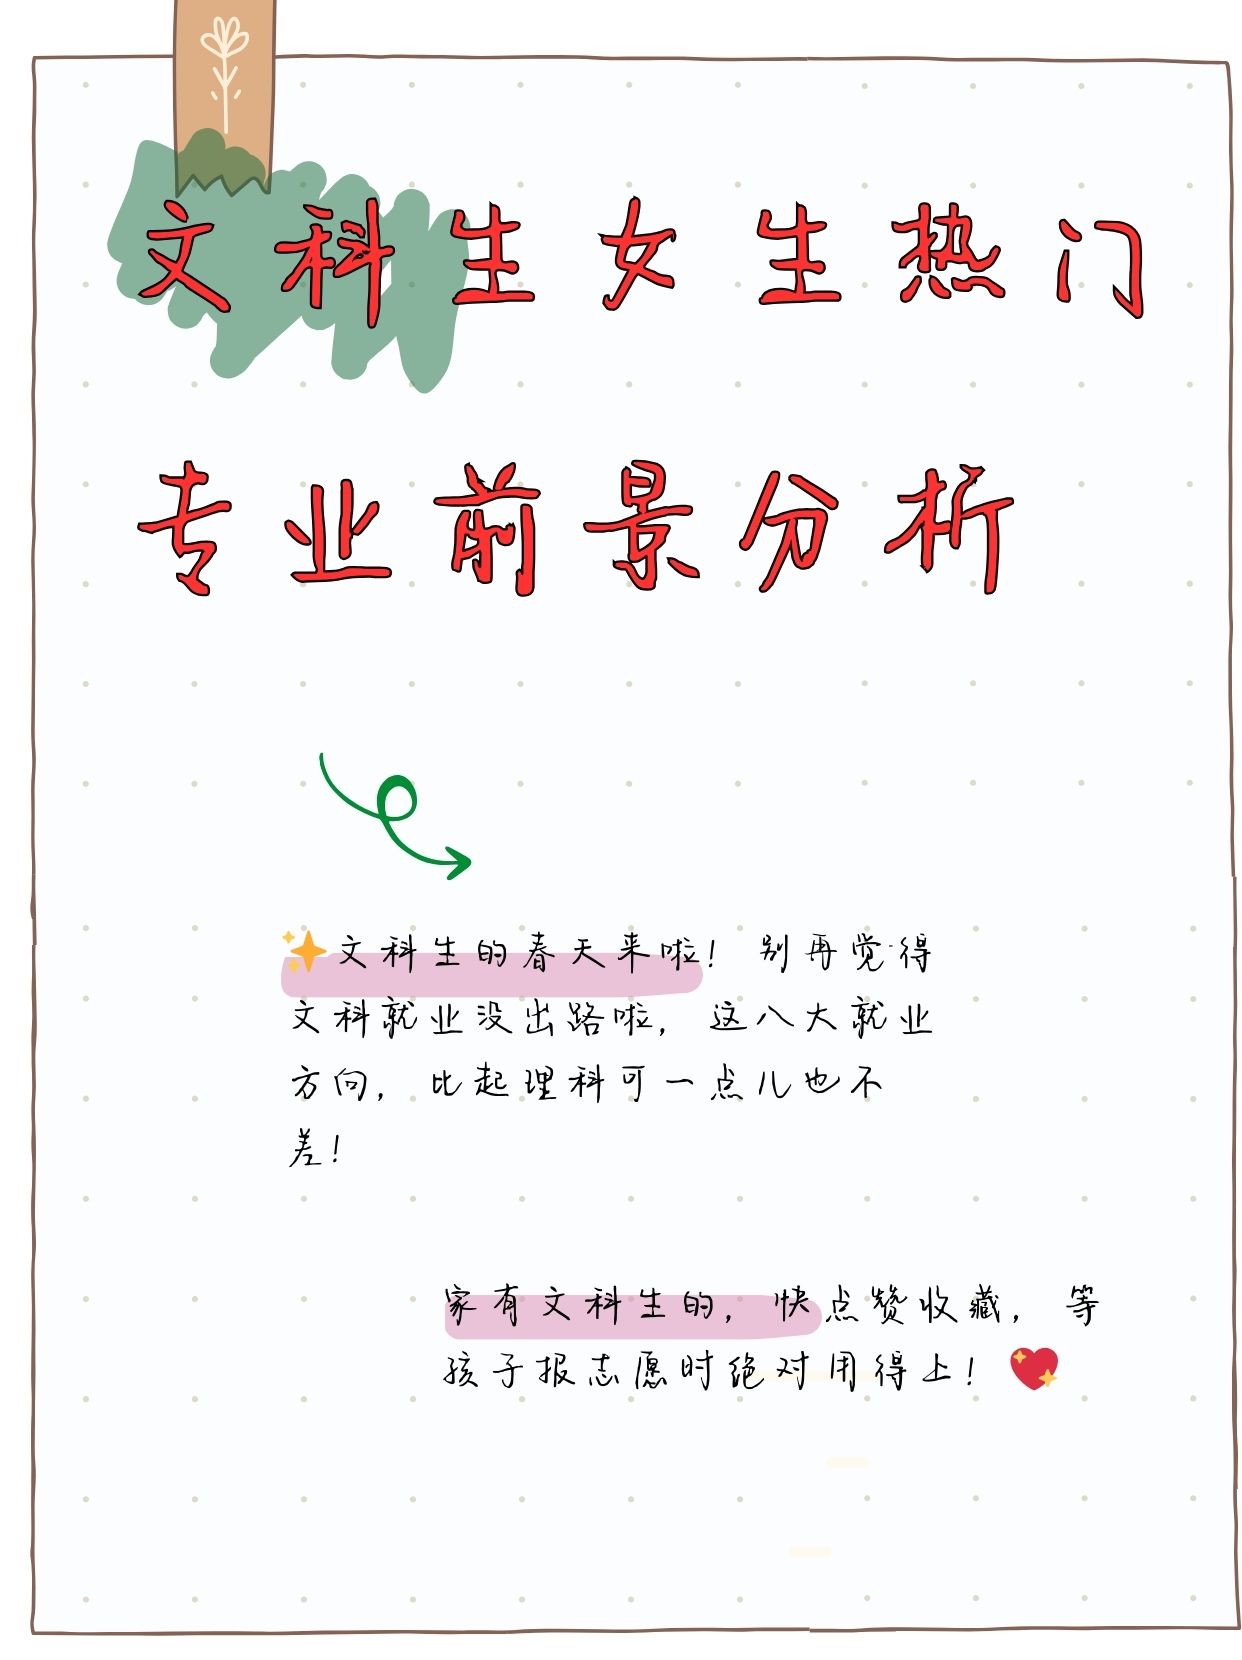 文科生女生热门
专业前景分析
✨文科生的春天来啦！别再觉得
文科就业没出路啦，这八大就业
方向，比起理科可一点儿也不
差！
家有文科生的，快点赞收藏，等
孩子报志愿时绝对用得上！💖